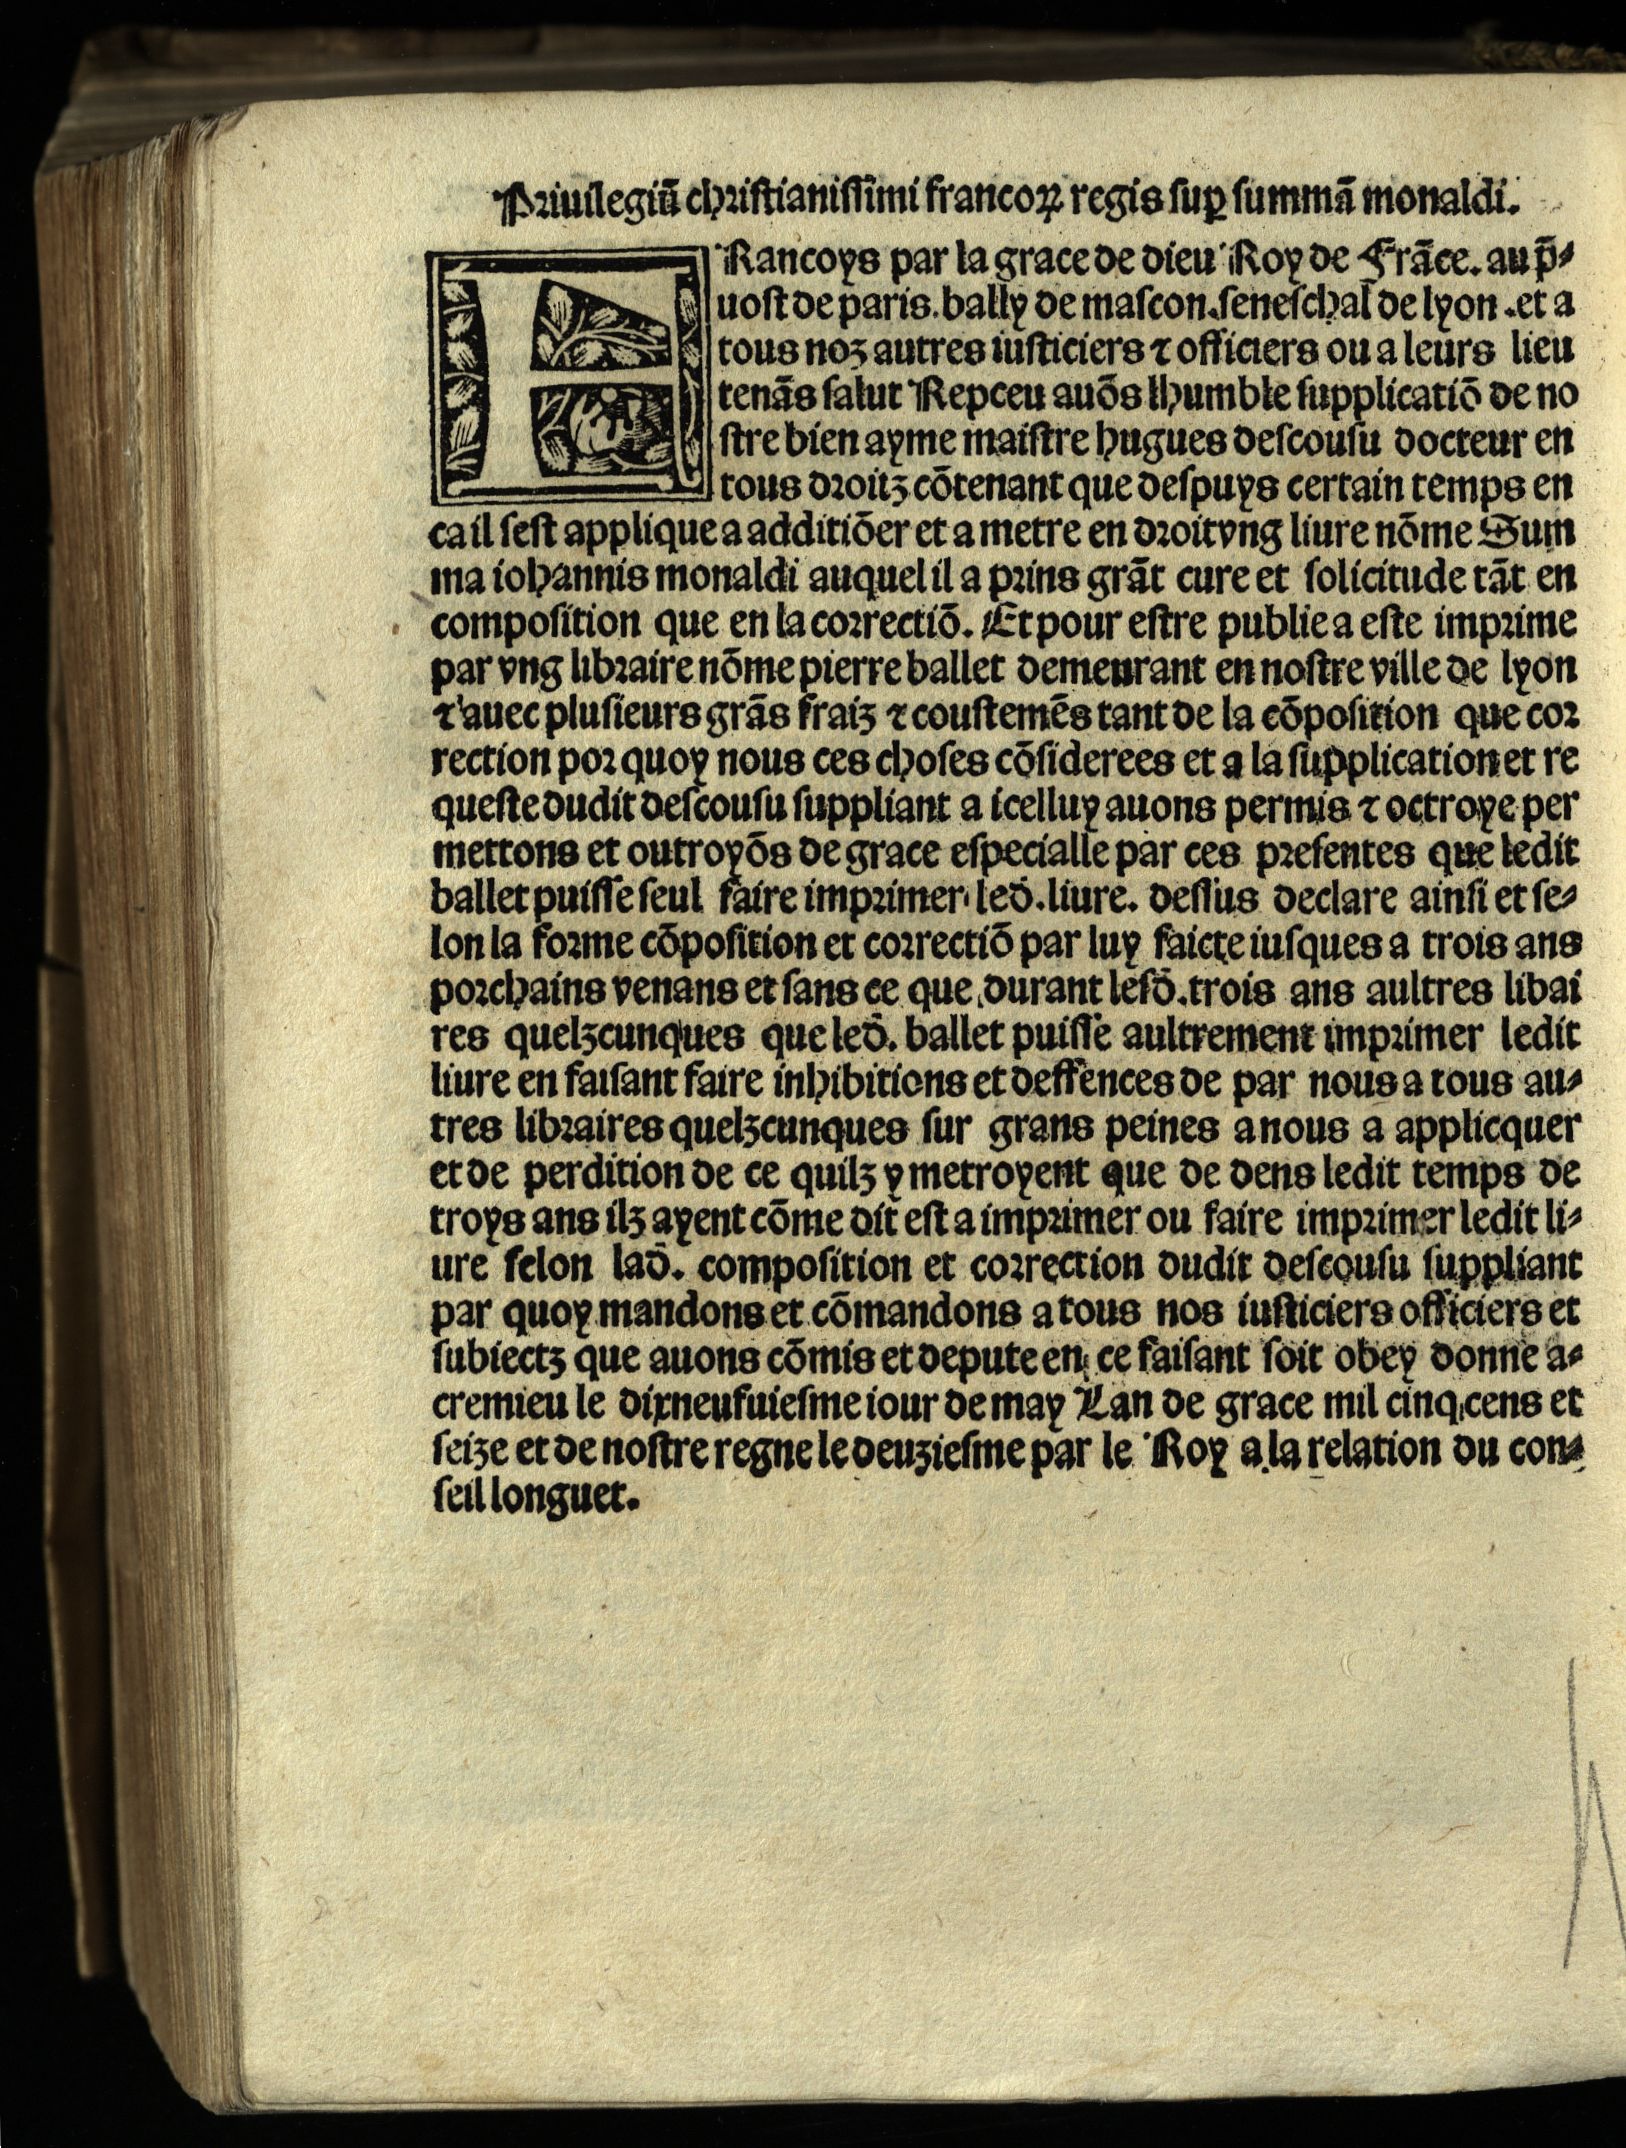 Priuilegiū chriſtianiſſimi francoꝝ regis ſuꝑ ſummā monaldi.
FRancoys par la grace de dieu Roy de Frāce. au p̄⸗
uoſt de paris. bally de maſcon. ſeneſchal de lyon. et a
tous noz autres iuſticiers ⁊ officiers ou a leurs lieu
tenās ſalut Repceu auōs lhumble ſupplicatiō de no
ſtre bien ayme maiſtre hugues deſcouſu docteur en
tous droitz cōtenant que deſpuys certain temps en
ca il ſeſt applique a additiōer et a metre en droit vng liure nōme Sum
ma iohannis monaldi auquel il a prins grāt cure et ſolicitude tāt en
compoſition que en la correctiō. Et pour eſtre publie a eſte imprime
par vng libraire nōme pierre ballet demeurant en noſtre ville de lyon
⁊ auec pluſieurs grās fraiz ⁊ couſtemēs tant de la cōpoſition que cor
rection por quoy nous ces choſes cōſiderees et a la ſupplication et re
queſte dudit deſcouſu ſuppliant a icelluy auons permis ⁊ octroye per
mettons et outroyōs de grace eſpecialle par ces preſentes que ledit
ballet puiſſe ſeul faire imprimer led̄. liure. deſſus declare ainſi et ſe⸗
lon la forme cōpoſition et correctiō par luy faicte iuſques a trois ans
porchains venans et ſans ce que durant leſd̄. trois ans aultres libai
res quelzcunques que led̄. ballet puiſſe aultrement imprimer ledit
liure en faiſant faire inhibitions et deffences de par nous a tous au⸗
tres libraires quelzcunques ſur grans peines a nous a applicquer
et de perdition de ce quilz y metroyent que de dens ledit temps de
troys ans ilz ayent cōme dit eſt a imprimer ou faire imprimer ledit li⸗
ure felon lad̄. compoſition et correction dudit deſcouſu ſuppliant
par quoy mandons et cōmandons a tous nos iuſticiers officiers et
ſubiectz que auons cōmis et depute en ce faiſant ſoit obey donne a⸗
cremieu le dixneufuieſme iour de may Lan de grace mil cinq cens et
ſeize et de noſtre regne le deuzieſme par le Roy a la relation du con⸗
ſeil longuet.